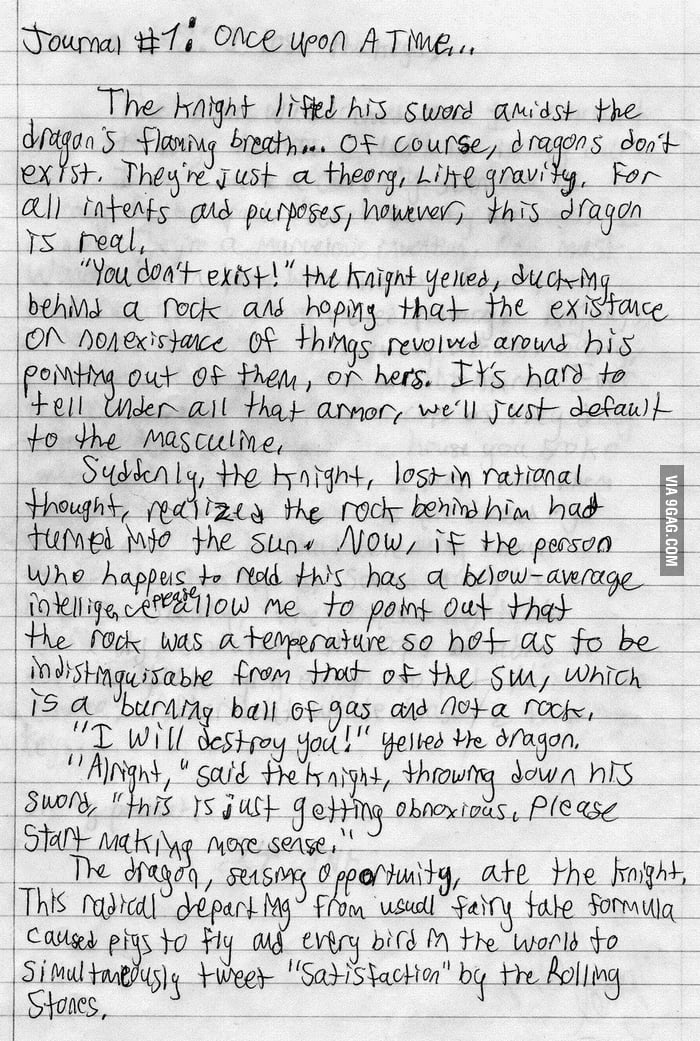 Journal #1: Once upon A Time...
The knight lifted his sword amidst the
dragon's flaming breath... Of course, dragons don't
exist. They're just a theory, Like gravity. For
all intents and purposes, however, this dragon
is real.
"You don't exist!" the knight yelled, ducking
behind a rock and hoping that the existance
or nonexistance of things revolved around his
pointing out of them, or hers. It's hard to
tell under all that armor, we'll just default
to the masculine.
Suddenly, the knight, lost in rational
thought, realized the rock behind him had
turned into the sun. Now, if the person
who happens to read this has a below-average
intelligence please allow me to point out that
the rock was a temperature so hot as to be
indistinguisable from that of the sun, which
is a burning ball of gas and not a rock.
"I will destroy you!" yelled the dragon.
"Alright," said the knight, throwing down his
sword, "this is just getting obnoxious. Please
start making more sense."
The dragon, sensing opportunity, ate the knight.
This radical departing from usual fairy tale formula
caused pigs to fly and every bird in the world to
simultaneously tweet "Satisfaction" by the Rolling
Stones.
VIA 9GAG.COM